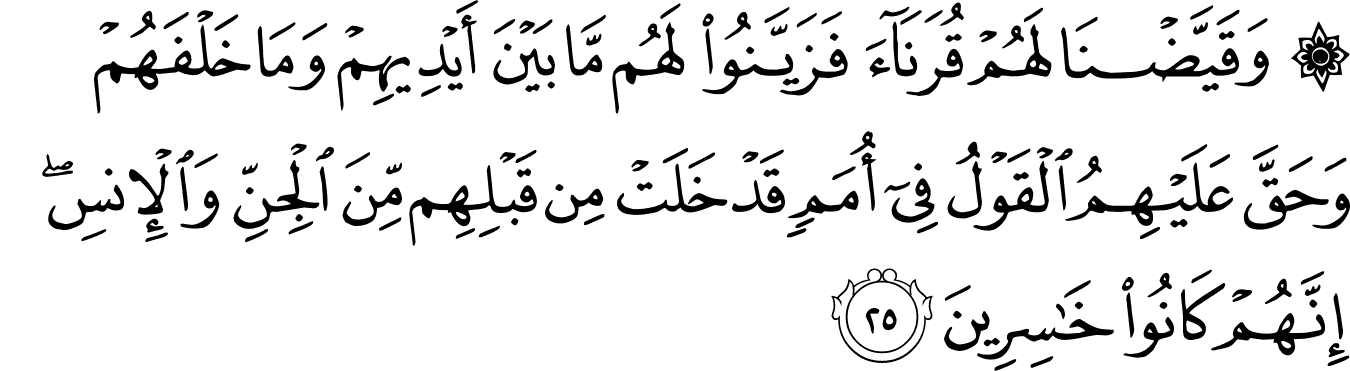 ۞ وَقَيَّضْنَا لَهُمْ قُرَنَآءَ فَزَيَّنُوا۟ لَهُم مَّا بَيْنَ أَيْدِيهِمْ وَمَا خَلْفَهُمْ
وَحَقَّ عَلَيْهِمُ ٱلْقَوْلُ فِىٓ أُمَمٍ قَدْ خَلَتْ مِن قَبْلِهِم مِّنَ ٱلْجِنِّ وَٱلْإِنسِ ۖ
إِنَّهُمْ كَانُوا۟ خَـٰسِرِينَ ٢٥